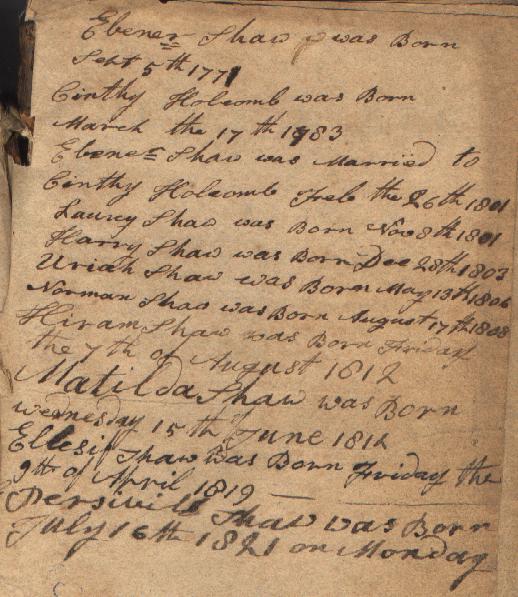 Ebenezr Shaw was Born
Sept 5th 1771
Cinthy Holcomb was Born
March the 17th 1783
Ebenez Shaw was Married to
Cinthy Holcomb Freb the 26th 1801
Laurey Shaw was Born Nov 8th 1801
Harry Shaw was Born Dec 28th 1803
Uriah Shaw was Born May 13th 1806
Norman Shaw was Born August 17th 1808
Hiram Shaw was Born Friday
the 7th of August 1812
Matilda Shaw was Born
wednesday 15th June 1814
Shaw was Born Friday the
9th of April 1819
Persivill Shaw was Born
July 16th 1821 on Monday